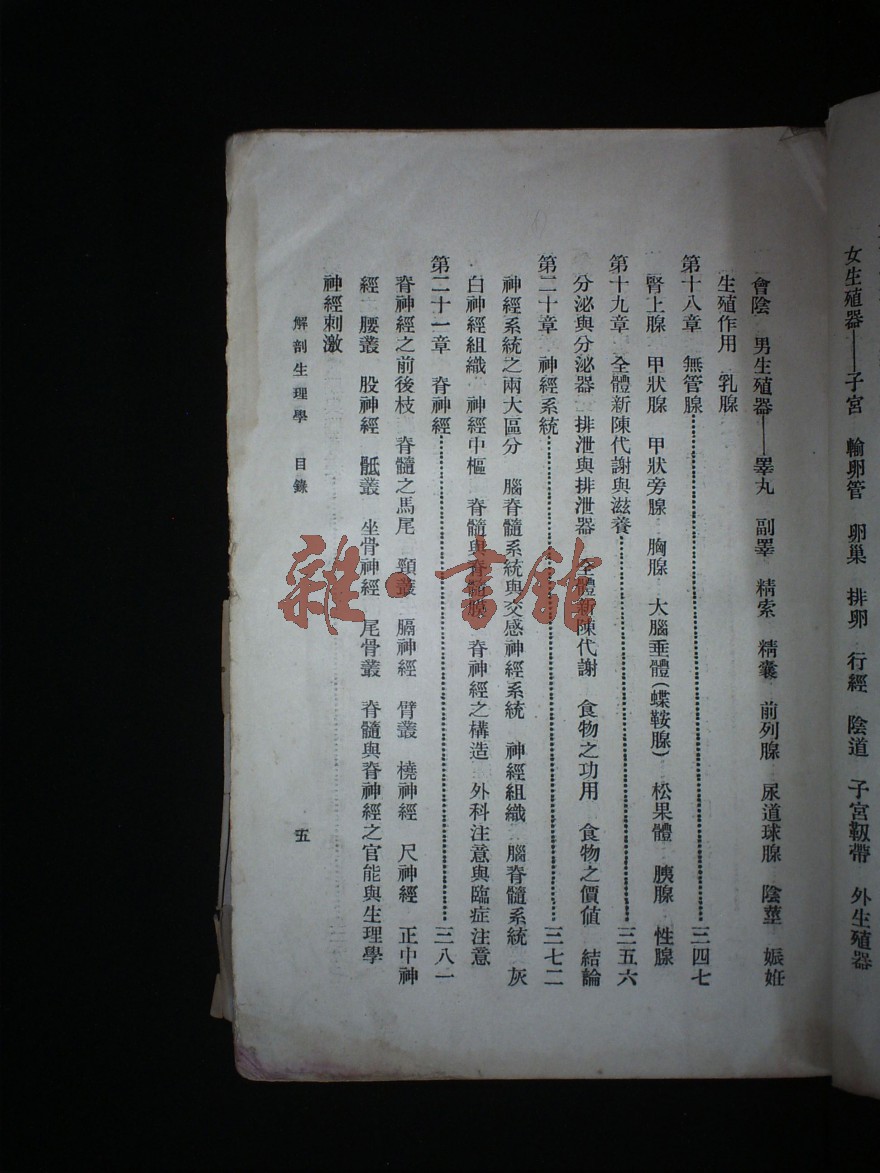 女生殖器——子宮　輸卵管　卵巢　排卵　行經　陰道　子宮靱帶　外生殖器
會陰　男生殖器——睪丸　副睪　精索　精囊　前列腺　尿道球腺　陰莖　娠姙
生殖作用　乳腺
第十八章　無管腺…………三四七
腎上腺　甲狀腺　甲狀旁腺　胸腺　大腦垂體(蝶鞍腺)　松果體　胰腺　性腺
第十九章　全體新陳代謝與滋養…………三五六
分泌與分泌器　排泄與排泄器　全體新陳代謝　食物之功用　食物之價値　結論
第二十章　神經系統…………三七二
神經系統之兩大區分　腦脊髓系統與交感神經系統　神經組織　腦脊髓系統　灰
白神經組織　神經中樞　脊髓與脊髓膜　脊神經之構造　外科注意與臨症注意
第二十一章　脊神經…………三八一
脊神經之前後枝　脊髓之馬尾　頸叢　膈神經　臂叢　橈神經　尺神經　正中神
經　腰叢　股神經　骶叢　坐骨神經　尾骨叢　脊髓與脊神經之官能與生理學
神經刺激
解剖生理學　目錄　五
雜·書館